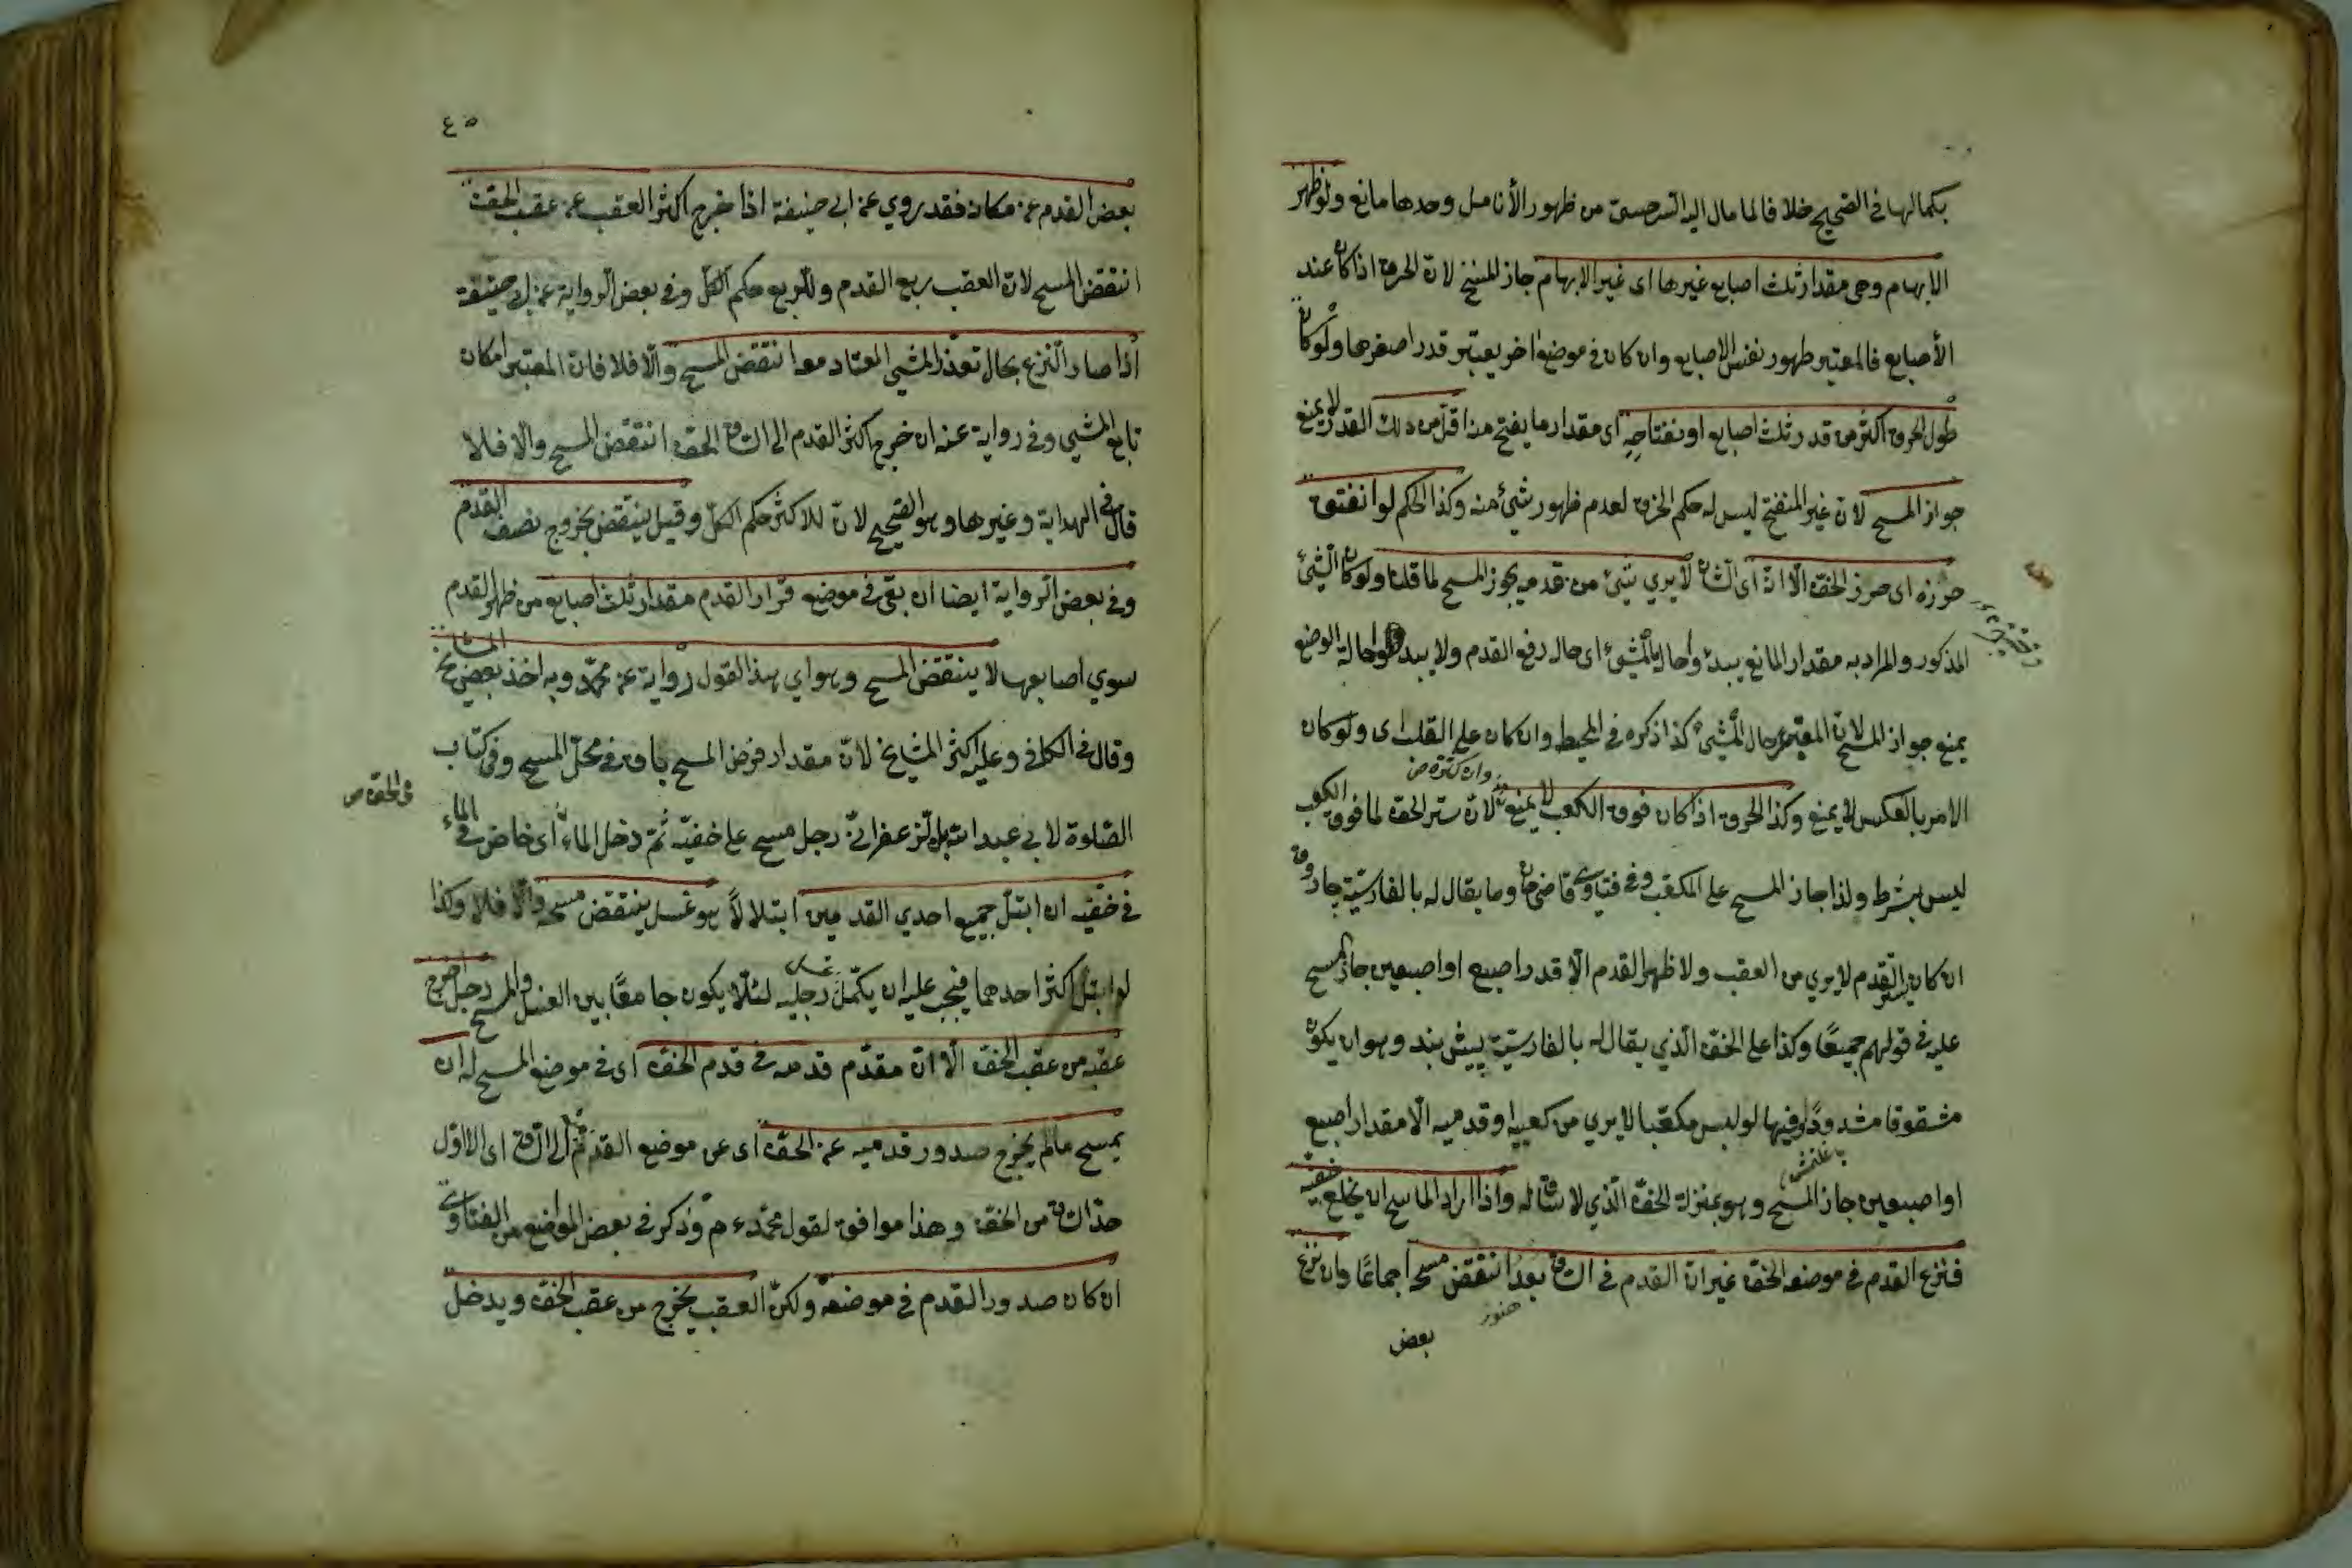 بكمالها في الصحيح خلافا لما مال اليه السرخسي من ظهور الأنامل وحدها مانع ولو ظهر
الابهام وهي مقدار ثلث اصابع غيرها اى غير الابهام جاز المسح لان الخرق اذا كان عند
الأصابع فالمعتبر ظهور نفس الاصابع وان كان في موضع اخر يعتبر قدر اصغرها ولو كان
طول الخرق اكثر من قدر ثلث اصابع او نفتاحه اى مقدار ما يفتح منه اقل من ذلك القدر لا يمنع
جواز المسح لان غير المنفتح ليس له حكم الخرق لعدم ظهور شيئ منه وكذا الحكم لو انفتق
خرزه اى خرز الخف الّا انّ اى الشان لا يري شيئ من قدميه يجوز المسح لما قلنا ولو كان الشيئ
المذكور والمراد به مقدار المانع يبدؤ حال المشيئ اى حال رفع القدم ولا يبدو حالة الوضع
يمنع جواز المسح لان المعتبر حال المشيئ كذا ذكره في المحيط وان كان على القلب اى ولو كان
الامر بالعكس لا يمنع وكذا الخرق اذا كان فوق الكعب لا يمنع لان ستر الخف لما فوق الكعب
وان كثر
ليس بشرط ولذا جاز المسح على المكعب وفي فتاوى قاضي خان وما يقال له بالفارسية جاروق
ان كان يستر القدم لا يري من العقب ولا ظهر القدم الّا قدر اصبع او اصبعين جاز المسح
عليه في قولهم جميعًا وكذا على الخف الّذي يقال له بالفارسيّة پيش بند وهو ان يكون
مشقوقا مشدودًا وفيها لو لبس مكعّبا لا يري من كعبيه او قدميه الّا مقدار اصبع
او اصبعين جاز المسح وهو بمنزلة الخف الّذي لا ساق له واذا اراد الماسح ان يخلع خفيه
فنزع القدم في موضعه الخف غير ان القدم في الساق بعد انتقض مسحه اجماعًا وان نزع
هنوز
بعض
٤٥
بعض القدم عن مكان فقد روي عن ابي حنيفة اذا خرج اكثر العقب عن عقب الخف
انتقض المسح لان العقب ربع القدم وللربع حكم الكل وفي بعض الرواية عن ابي حنيفة
اذا صار النزع بحال تعذّر المشي المعتاد معه انتقض المسح والّا فلا فان المعتبر امكان
تابع المشي وفي رواية عنه ان خرج اكثر القدم الى الساق الخف انتقض المسح والّا فلا
قال في الهداية وغيرها وهو الصحيح لان للاكثر حكم الكلّ وقيل ينتقض بخروج نصف القدم
وفي بعض الرواية ايضا ان بقي في موضع قرار القدم مقدار ثلث اصابع من ظهر القدم
سوي اصابعها لا ينتقض المسح وهو اي هذا القول رواية عن محمّد وبه اخذ بعض المشايخ
وقال في الكافي وعليه اكثر المشايخ لانّ مقدار فرض المسح باق في محلّ المسح وفي كتاب
الصّلوة لابي عبد الله الزعفراني رجل مسح على خفيّه ثم دخل الماء اى خاض في الماء
في خفيّه ان ابتل جميع احدي القدمين ابتلالًا هو غسل ينتقض مسحه والّا فلا وكذا
لو ابتل اكثر احدهما فيجب عليه ان يكمّل غسل رجليه لئلّا يكون جامعًا بين الغسل والمسح رجل اخرج
عقبه من عقب الخف الّا ان مقدّم قدمه في قدم الخف اى في موضع المسح له ان
يمسح مالم يخرج صدور قدميه عن الخف اى عن موضع القدم الى الساق اى الاوّل
حدّ الساق من الخف وهذا موافق لقول محمّد وذكر في بعض المواضع من الفتاوى
ان كان صدور القدم في موضعه ولكن العقب يخرج من عقب الخف ويدخل